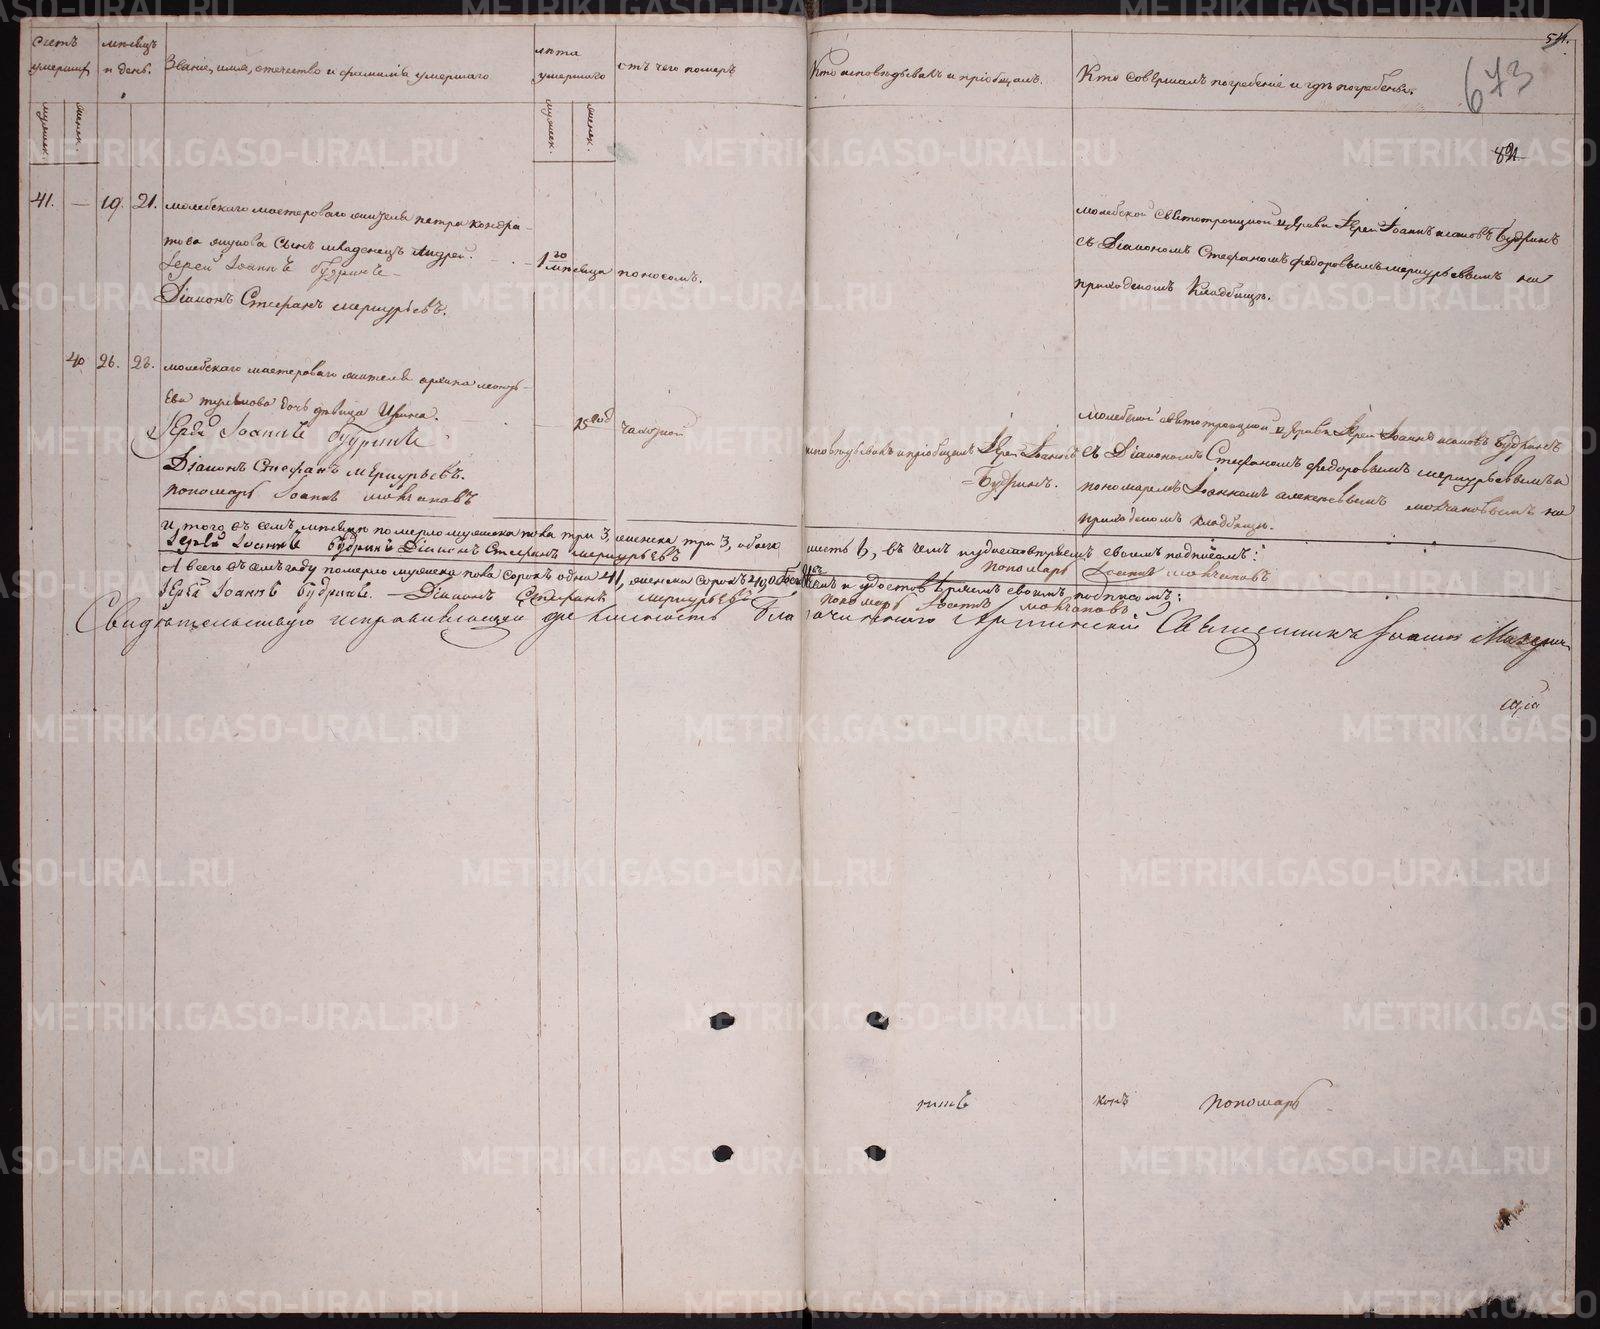 METRIKI.GASO-URAL.RU
Счетъ умершихъ
мѣсяцъ и день.
Званіе, имя, отечество и фамилія умершаго
лѣта умершаго
отъ чего померъ
Кто исповѣдывалъ и пріобщалъ.
Кто совершалъ погребеніе и гдѣ погребены.
мужеск.
женск.
мужеск.
женск.
673
41. — 19. 21.
молебскаго мастероваго жителя петра кондра-
това сынъ младенецъ Андрей.
Іерей Іоаннъ Будринъ
Діаконъ Стефанъ меркурьевъ.
1го мѣсяца
поносомъ.
молебской святотроицкой церкви Іерей Іоаннъ Будринъ
съ Діакономъ Стефаномъ федоровымъ меркурьевымъ на
приходскомъ кладбищѣ.
40 26. 28.
молебскаго мастероваго жителя архипа леонть-
ева дочь дѣвица Ирина.
Іерей Іоаннъ Будринъ
Діаконъ Стефанъ меркурьевъ.
пономарь Іоаннъ молчановъ
15 год
чахоткой
исповѣдывалъ и пріобщалъ Іерей Іоаннъ
Будринъ.
молебской святотроицкой церкви Іерей Іоаннъ Будринъ
съ Діакономъ Стефаномъ федоровымъ меркурьевымъ и
пономаремъ Іоанномъ алексеевымъ молчановымъ на
приходскомъ кладбищѣ.
Итого въ семъ мѣсяцѣ померло мужеска пола три 3, женска три 3, обоего шесть 6, въ чемъ и удостовѣряемъ своимъ подписомъ:
Іерей Іоаннъ Будринъ Діаконъ Стефанъ меркурьевъ пономарь Іоаннъ молчановъ
А всего въ семъ году померло мужеска пола сорокъ одинъ 41, женска сорокъ 40, обоего 81 въ чемъ и удостовѣряемъ своимъ подписомъ:
Іерей Іоаннъ Будринъ. — Діаконъ Стефанъ меркурьевъ пономарь Іоаннъ молчановъ.
Свидѣтельствую исправляющей должность благочиннаго Артинскій Священникъ Іоаннъ
пономарь